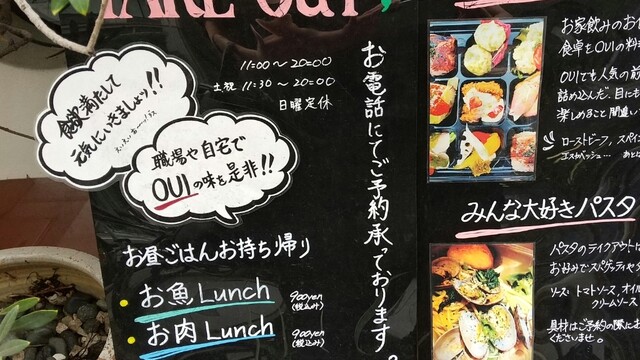 TAKE OUT
11:00〜20:00
土祝 11:30〜20:00
日曜定休
食欲満たして
元気にいきましょッ!!
職場や自宅で
OUIの味を是非!!
お電話にてご予約承っております。
お昼ごはんお持ち帰り
お魚Lunch 900yen (税込み)
お肉Lunch 900yen (税込み)
お家飲みのお
食卓をOUIの料
OUIでも人気の前
詰め込んだ、目にも
楽しめること間違い
ローストビーフ、スペイン
みんな大好きパスタ
パスタのテイクアウトは
お好みでスパゲッティやタ
ソース: トマトソース、オイル
クリームソース
具材はご予約の際にお
くださいませ。